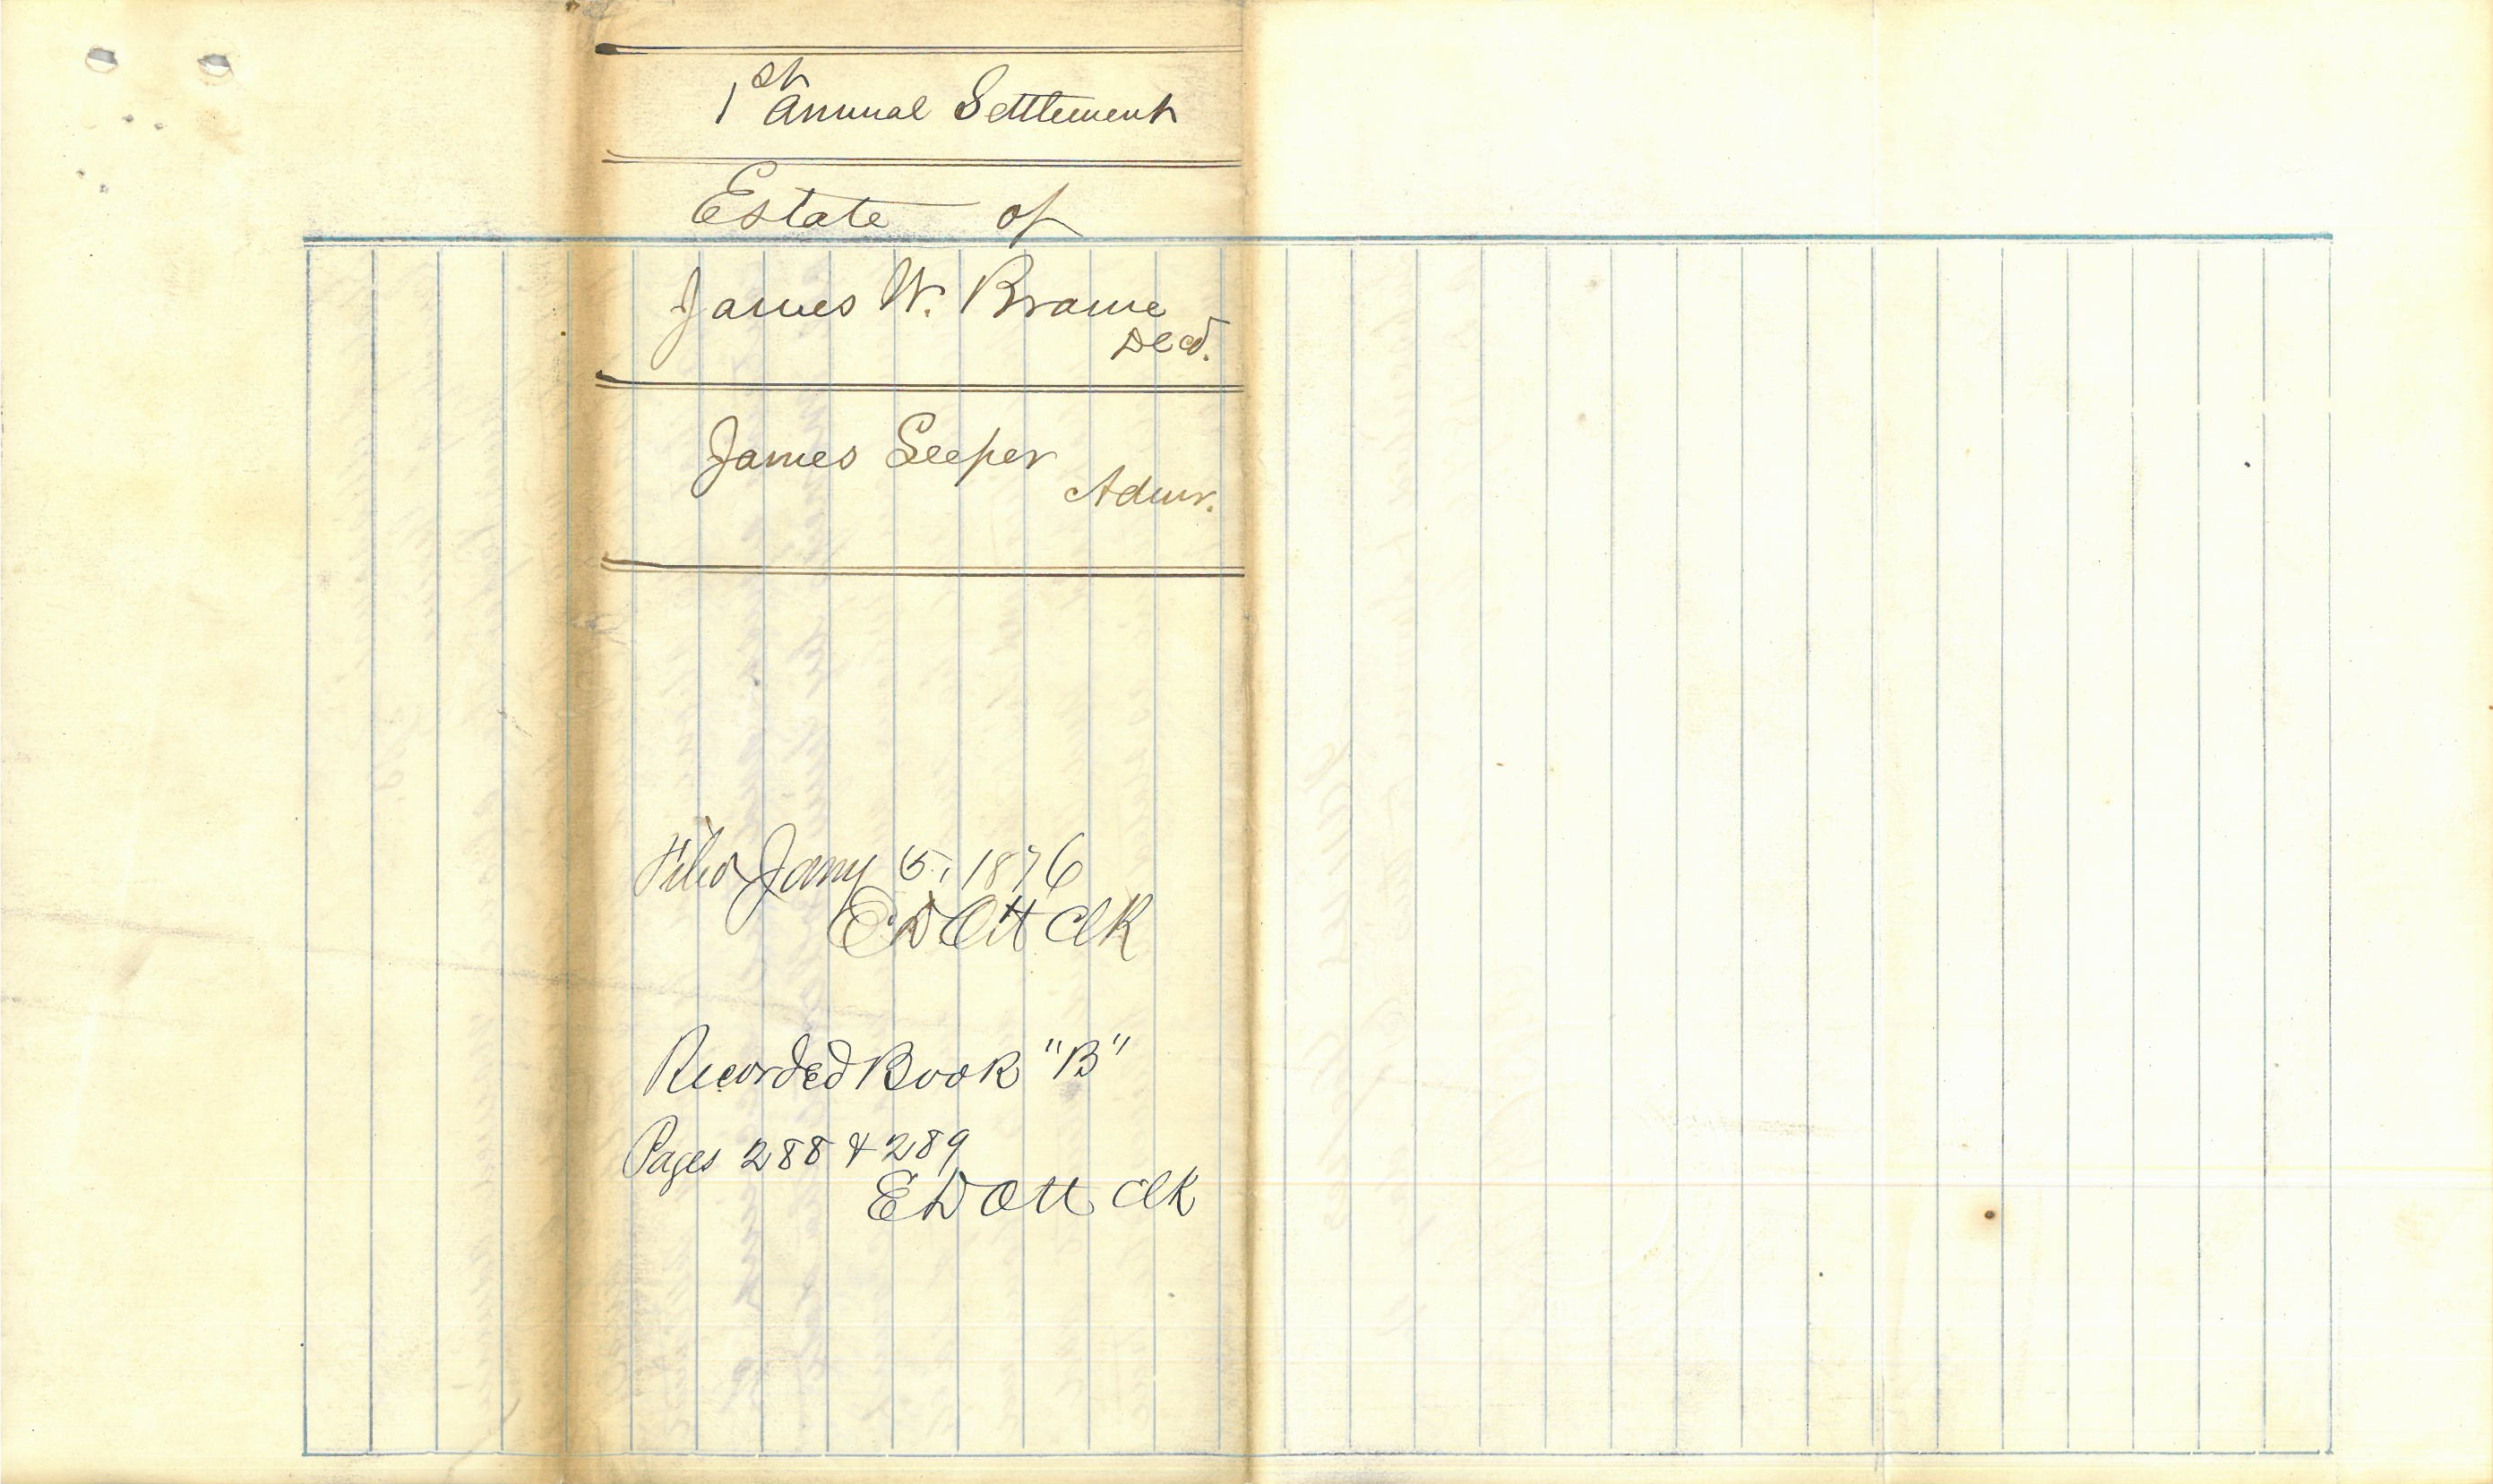 1st Annual Settlement
Estate of
James W. Brame
Decd.
James Seeper
Admr.
Filed Jany 5, 1876
E D Ott Clk
Recorded Book "B"
Pages 288 & 289
E D Ott Clk